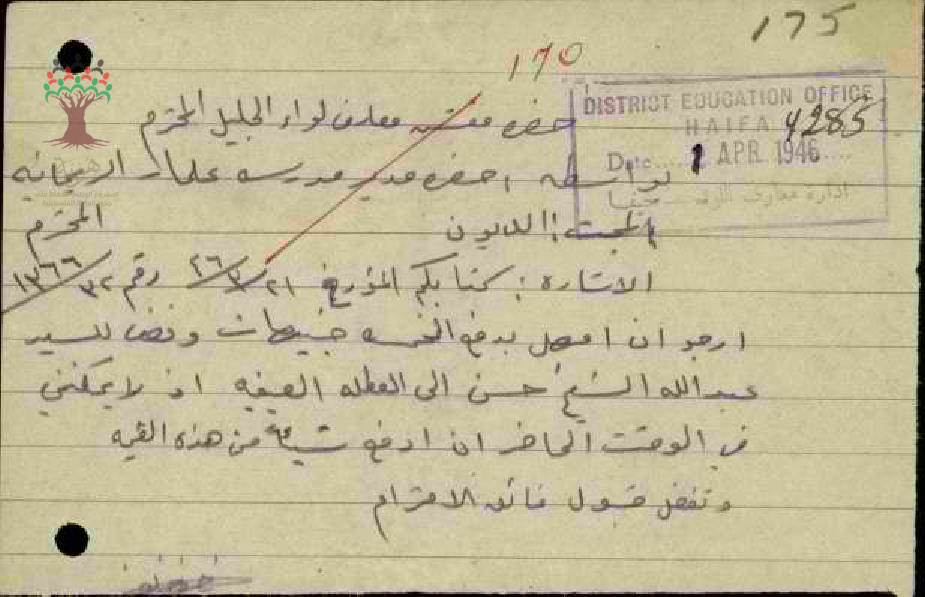 175
170
DISTRICT EDUCATION OFFICE
HAIFA 4285
Date 1 APR 1946
ادارة معارف اللواء حيفا
حضرة مفتش معارف لواء الجليل المحترم
بواسطة حضرة مدير مدرسة علما
المحترم
الديون
الاشارة : كتابكم المؤرخ ٢١/٣/٤٦ رقم
ارجو ان امهل بدفع الخمسه جنيهات ونصف للسيد
عبد الله الشيخ حسن الى العطله الصيفيه اذ لا يمكنني
في الوقت الحاضر ان ادفع شيئا من هذه القيمه
وتفضل قبول فائق الاحترام